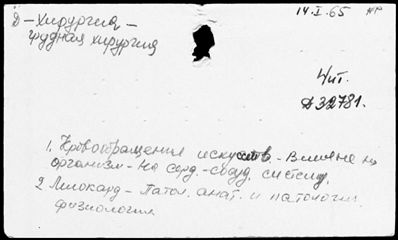 14.I.65 нр
д - Хирургия -
грудная хирургия
Чит.
Д32781.
1. Кровообращение искусств. - Влияние на
организм - На серд.-сосуд. систему.
2. Миокард - Патол. анат. и патологич.
физиология